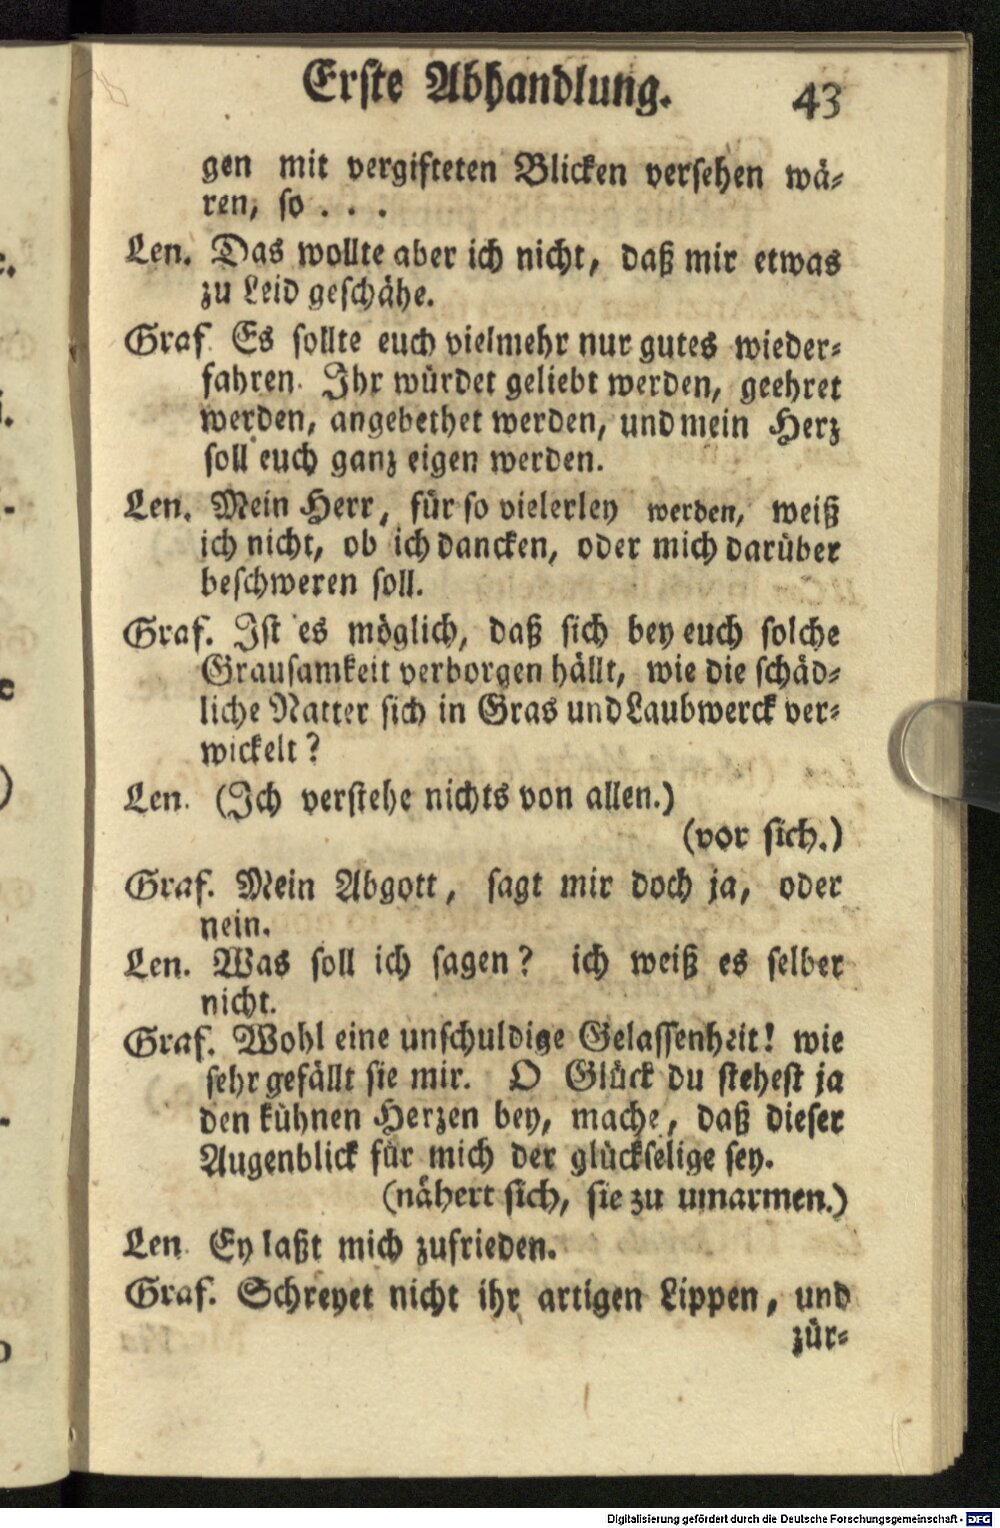 Erste Abhandlung. 43
gen mit vergifteten Blicken versehen wä-
ren, so . . .
Len. Das wollte aber ich nicht, daß mir etwas
zu Leid geschähe.
Graf. Es sollte euch vielmehr nur gutes wieder-
fahren. Ihr würdet geliebt werden, geehret
werden, angebethet werden, und mein Herz
soll euch ganz eigen werden.
Len. Mein Herr, für so vielerley werden, weiß
ich nicht, ob ich dancken, oder mich darüber
beschweren soll.
Graf. Ist es möglich, daß sich bey euch solche
Grausamkeit verborgen hällt, wie die schäd-
liche Natter sich in Gras und Laubwerck ver-
wickelt?
Len. (Ich verstehe nichts von allen.)
(vor sich.)
Graf. Mein Abgott, sagt mir doch ja, oder
nein.
Len. Was soll ich sagen? ich weiß es selber
nicht.
Graf. Wohl eine unschuldige Gelassenheit! wie
sehr gefällt sie mir. O Glück du stehest ja
den kühnen Herzen bey, mache, daß dieser
Augenblick für mich der glückselige sey.
(nähert sich, sie zu umarmen.)
Len. Ey laßt mich zufrieden.
Graf. Schreyet nicht ihr artigen Lippen, und
zür-
Digitalisierung gefördert durch die Deutsche Forschungsgemeinschaft - DFG